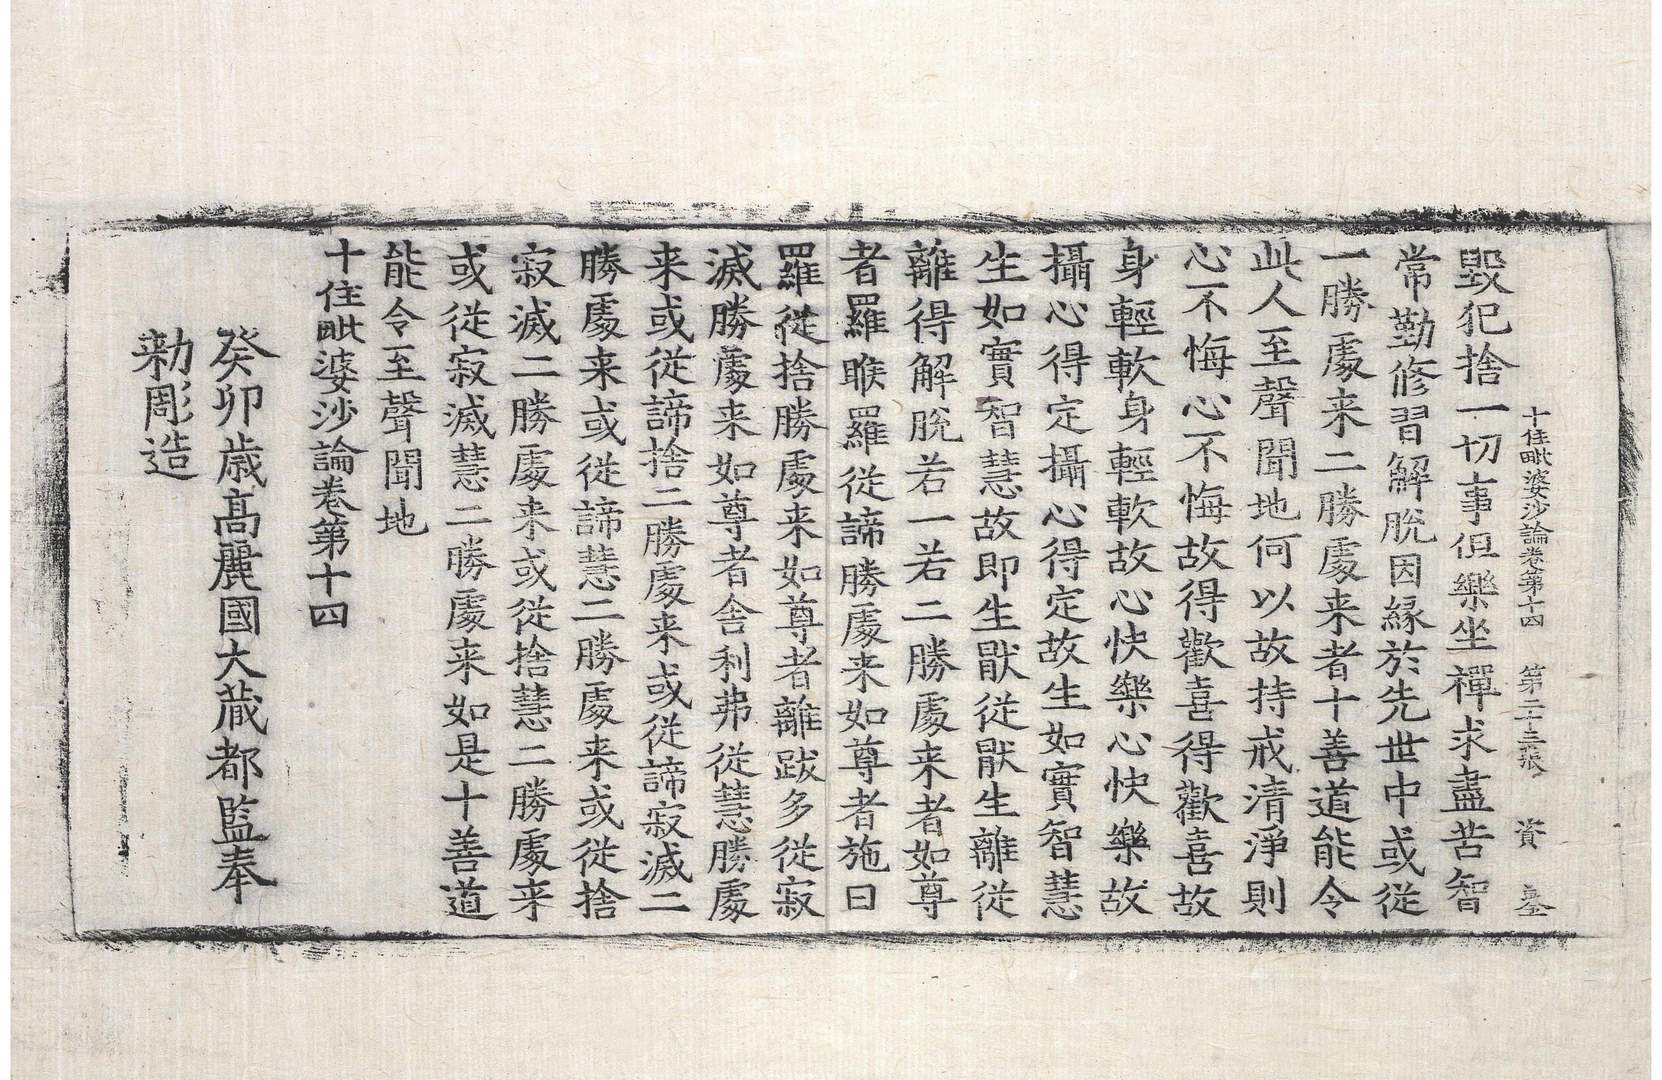 十住毗婆沙論卷第十四 第二十三張 資
毀犯捨一切事但樂坐禪求盡苦智
常勤修習解脫因緣於先世中或從
一勝處来二勝處来者十善道能令
此人至聲聞地何以故持戒清淨則
心不悔心不悔故得歡喜得歡喜故
身輕軟身輕軟故心快樂心快樂故
攝心得定攝心得定故生如實智慧
生如實智慧故即生厭從厭生離從
離得解脫若一若二勝處来者如尊
者羅睺羅從諦勝處来如尊者施曰
羅從捨勝處来如尊者離跋多從寂
滅勝處来如尊者舍利弗從慧勝處
来或從諦捨二勝處来或從諦寂滅二
勝處来或從諦慧二勝處来或從捨
寂滅二勝處来或從捨慧二勝處来
或從寂滅慧二勝處来如是十善道
能令至聲聞地
十住毗婆沙論卷第十四
癸卯歳高麗國大藏都監奉
勑彫造